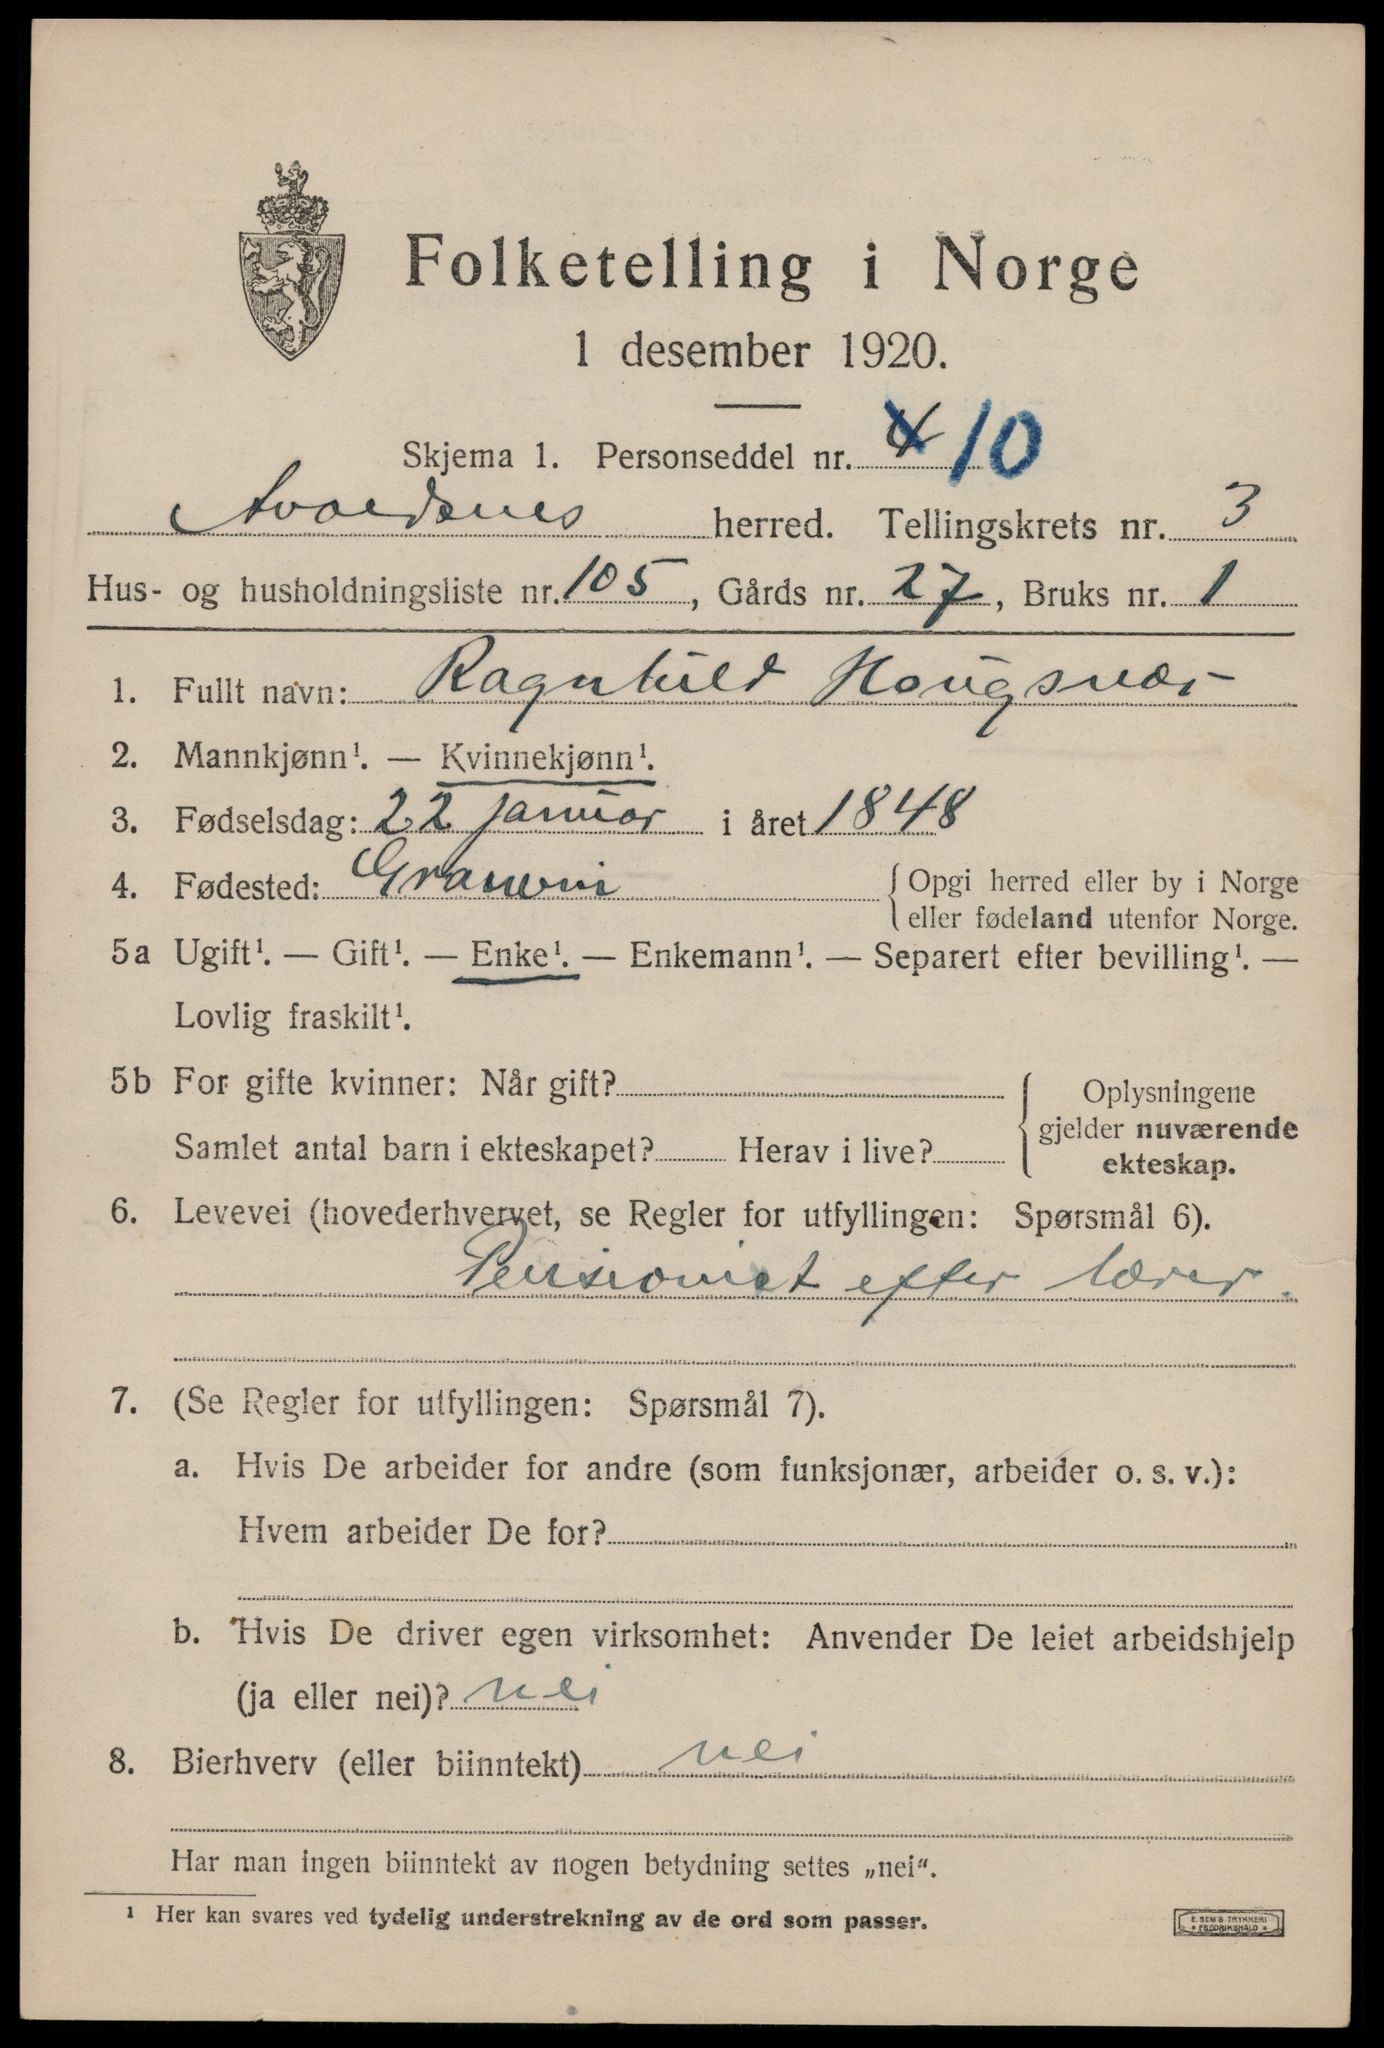 Folketelling i Norge
1 desember 1920.
Skjema 1. Personseddel nr. 4 10
Avaldsnes herred. Tellingskrets nr. 3
Hus- og husholdningsliste nr. 105, Gårds nr. 27, Bruks nr. 1
1. Fullt navn: Ragnhild Hougsvær
2. Mannkjønn¹. — Kvinnekjønn¹.
3. Fødselsdag: 22 januar i året 1848
4. Fødested: Granvin
{ Opgi herred eller by i Norge
eller fødeland utenfor Norge.
5a Ugift¹. — Gift¹. — Enke¹. — Enkemann¹. — Separert efter bevilling¹. —
Lovlig fraskilt¹.
5b For gifte kvinner: Når gift?
Samlet antal barn i ekteskapet? Herav i live?
{ Oplysningene
gjelder nuværende
ekteskap.
6. Levevei (hovederhvervet, se Regler for utfyllingen: Spørsmål 6).
Pensionist efter lærer.
7. (Se Regler for utfyllingen: Spørsmål 7).
a. Hvis De arbeider for andre (som funksjonær, arbeider o. s. v.):
Hvem arbeider De for?
b. Hvis De driver egen virksomhet: Anvender De leiet arbeidshjelp
(ja eller nei)? nei
8. Bierhverv (eller biinntekt) nei
Har man ingen biinntekt av nogen betydning settes „nei“.
¹ Her kan svares ved tydelig understrekning av de ord som passer.
E. SEM'S TRYKKERI
* FREDRIKSHALD *